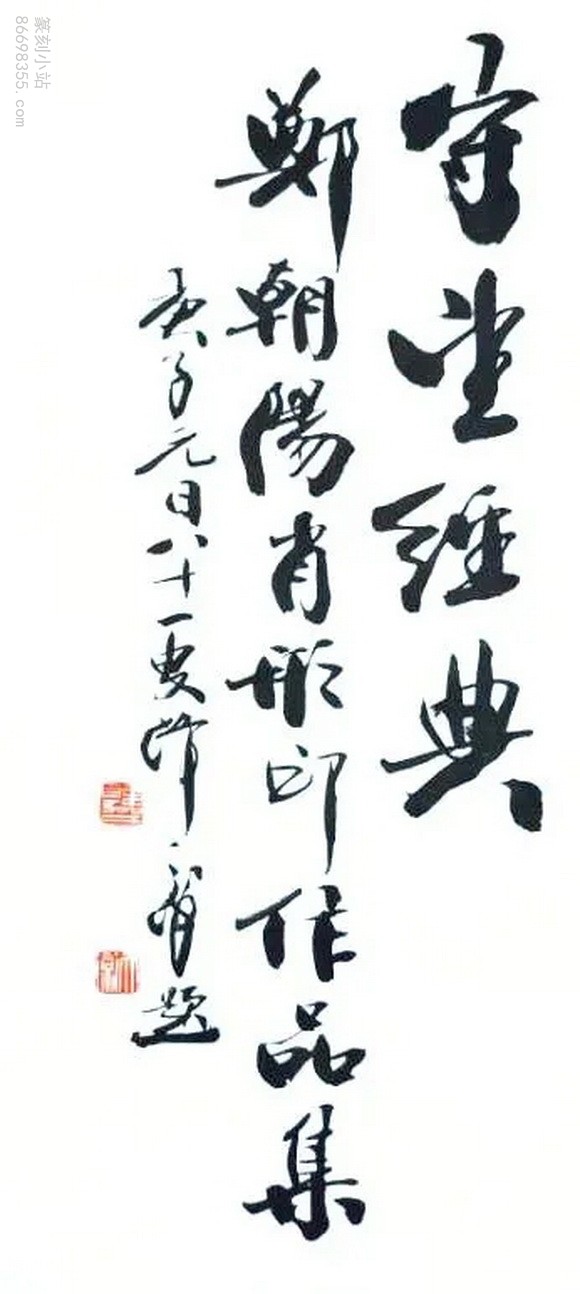 守望經典
鄭朝陽肖形印作品集
庚子元日八十一叟韓天衡題
篆刻小站
86698355. com